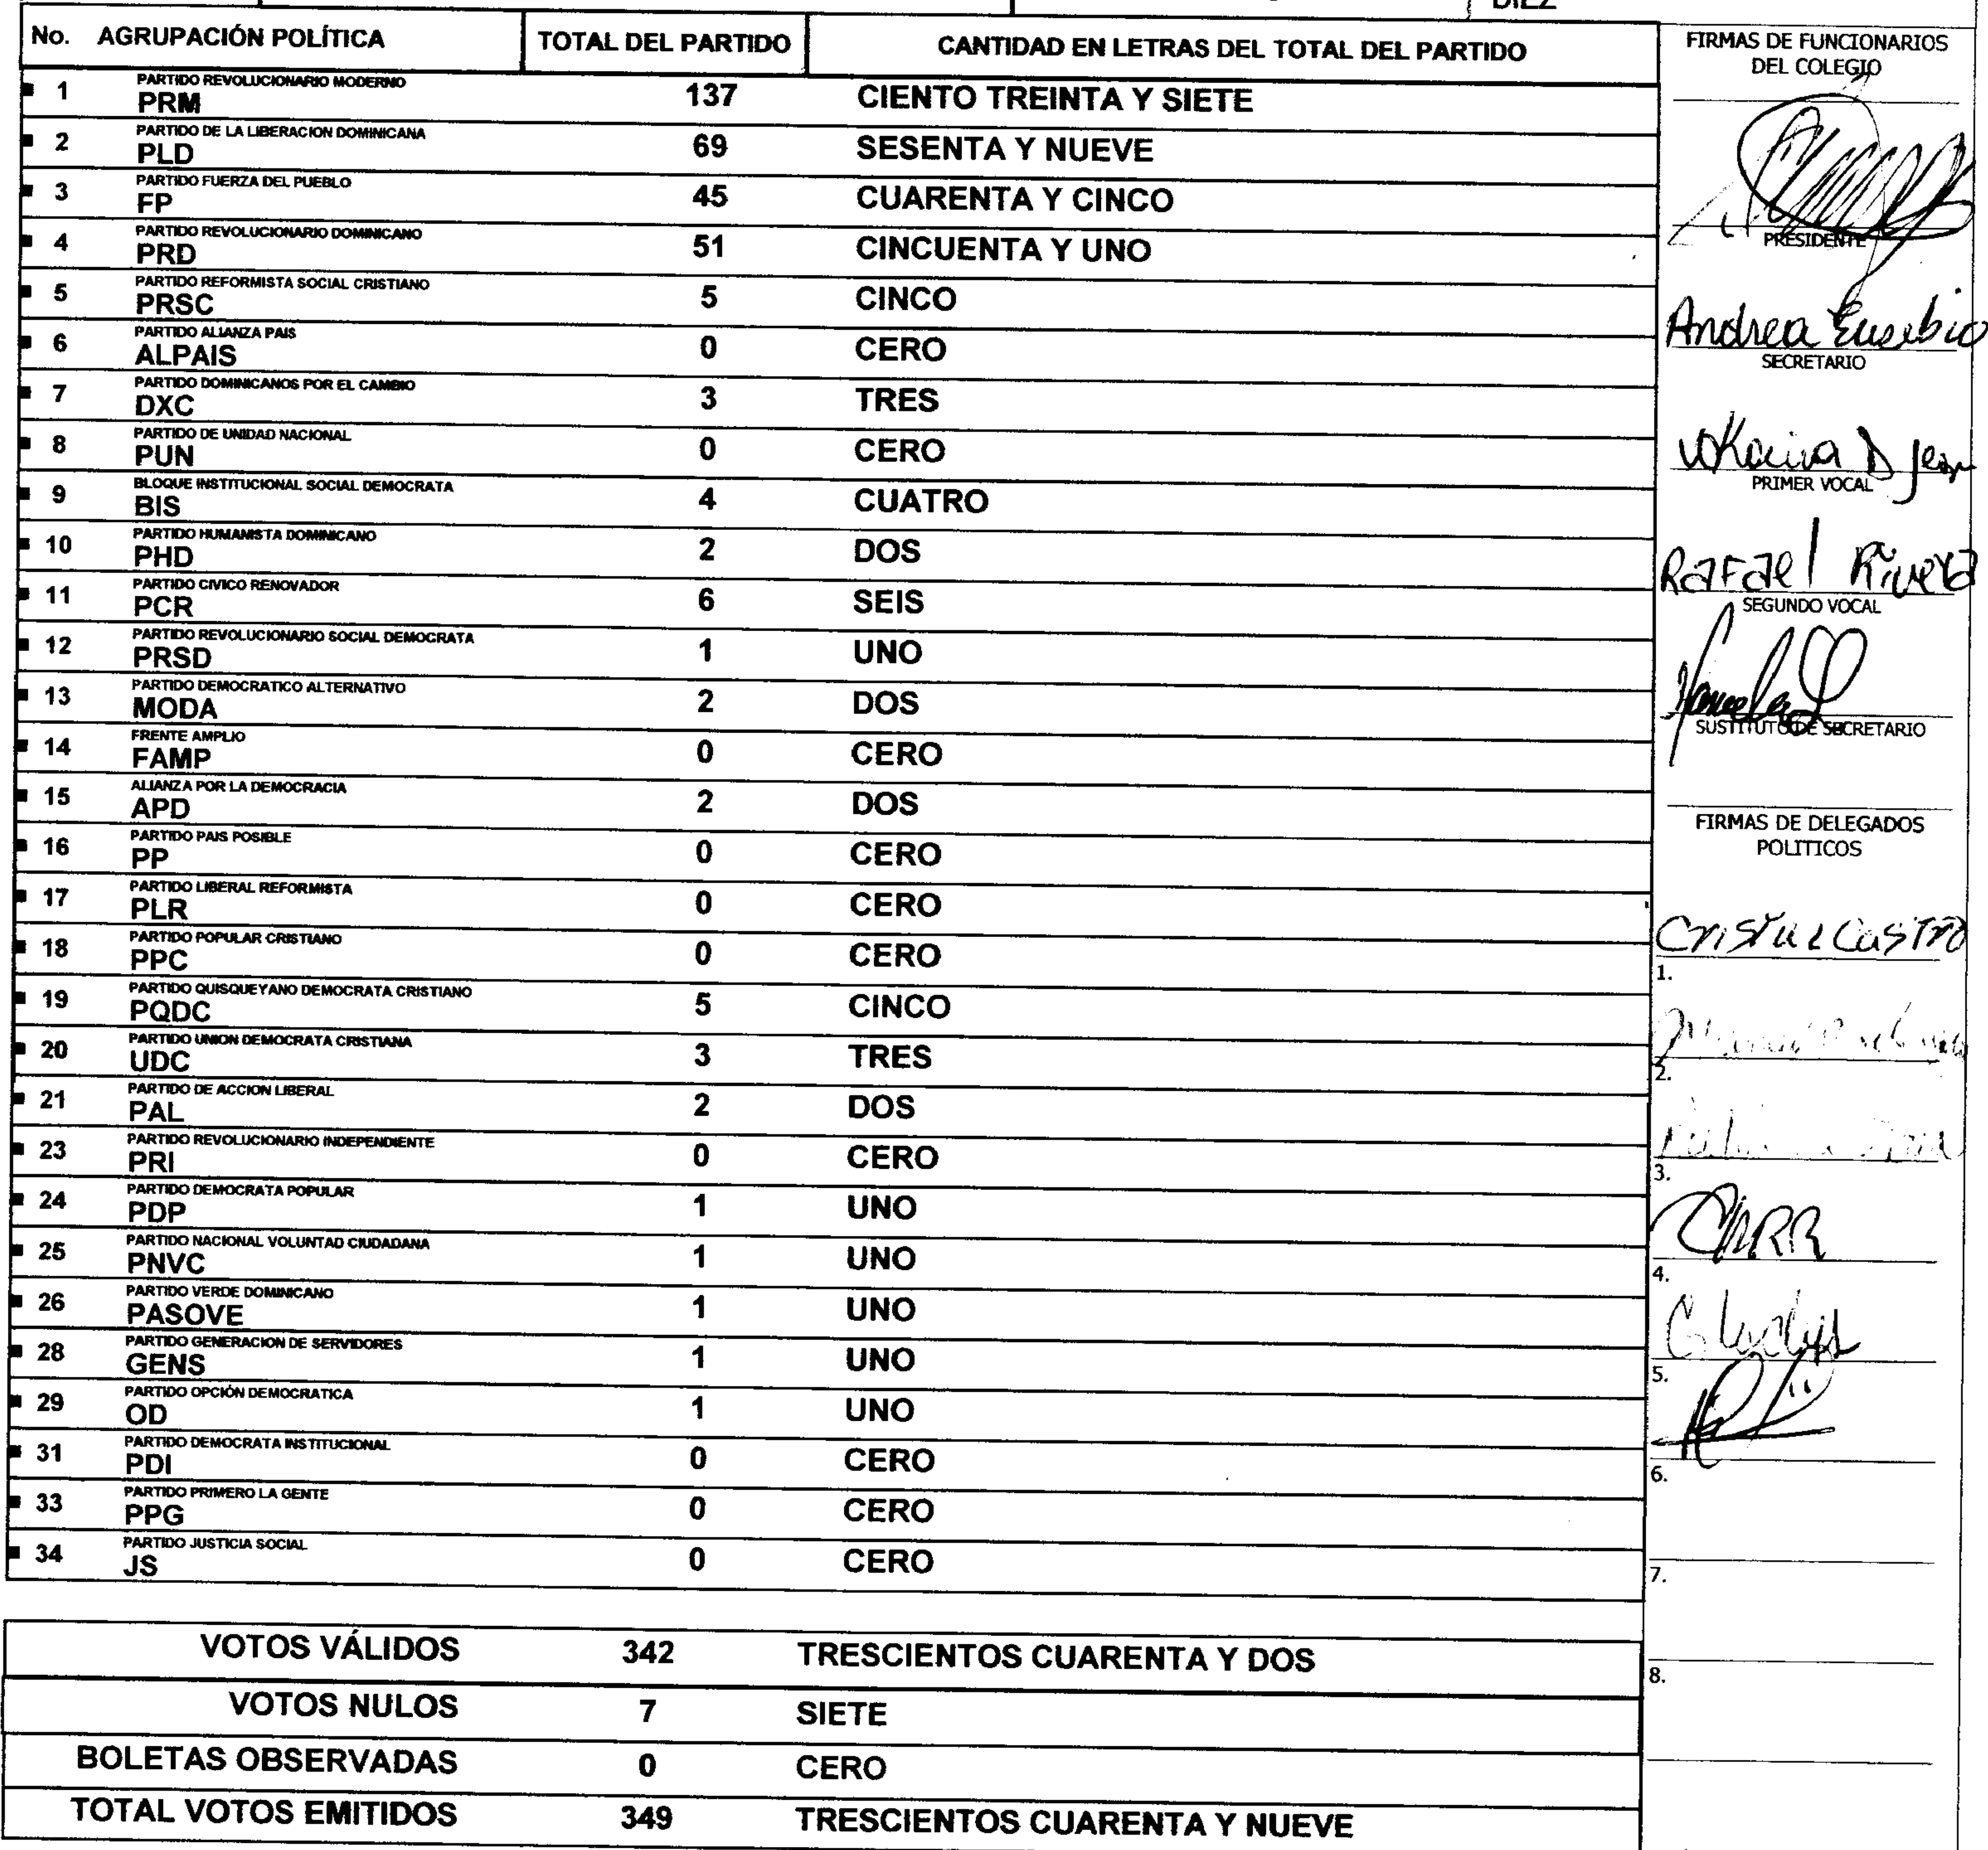 DIEZ
No. AGRUPACIÓN POLÍTICA TOTAL DEL PARTIDO CANTIDAD EN LETRAS DEL TOTAL DEL PARTIDO
PARTIDO REVOLUCIONARIO MODERNO
1 PRM 137 CIENTO TREINTA Y SIETE
PARTIDO DE LA LIBERACION DOMINICANA
2 PLD 69 SESENTA Y NUEVE
PARTIDO FUERZA DEL PUEBLO
3 FP 45 CUARENTA Y CINCO
PARTIDO REVOLUCIONARIO DOMINICANO
4 PRD 51 CINCUENTA Y UNO
PARTIDO REFORMISTA SOCIAL CRISTIANO
5 PRSC 5 CINCO
PARTIDO ALIANZA PAIS
6 ALPAIS 0 CERO
PARTIDO DOMINICANOS POR EL CAMBIO
7 DXC 3 TRES
PARTIDO DE UNIDAD NACIONAL
8 PUN 0 CERO
BLOQUE INSTITUCIONAL SOCIAL DEMOCRATA
9 BIS 4 CUATRO
PARTIDO HUMANISTA DOMINICANO
10 PHD 2 DOS
PARTIDO CIVICO RENOVADOR
11 PCR 6 SEIS
PARTIDO REVOLUCIONARIO SOCIAL DEMOCRATA
12 PRSD 1 UNO
PARTIDO DEMOCRATICO ALTERNATIVO
13 MODA 2 DOS
FRENTE AMPLIO
14 FAMP 0 CERO
ALIANZA POR LA DEMOCRACIA
15 APD 2 DOS
PARTIDO PAIS POSIBLE
16 PP 0 CERO
PARTIDO LIBERAL REFORMISTA
17 PLR 0 CERO
PARTIDO POPULAR CRISTIANO
18 PPC 0 CERO
PARTIDO QUISQUEYANO DEMOCRATA CRISTIANO
19 PQDC 5 CINCO
PARTIDO UNION DEMOCRATA CRISTIANA
20 UDC 3 TRES
PARTIDO DE ACCION LIBERAL
21 PAL 2 DOS
PARTIDO REVOLUCIONARIO INDEPENDIENTE
23 PRI 0 CERO
PARTIDO DEMOCRATA POPULAR
24 PDP 1 UNO
PARTIDO NACIONAL VOLUNTAD CIUDADANA
25 PNVC 1 UNO
PARTIDO VERDE DOMINICANO
26 PASOVE 1 UNO
PARTIDO GENERACION DE SERVIDORES
28 GENS 1 UNO
PARTIDO OPCIÓN DEMOCRATICA
29 OD 1 UNO
PARTIDO DEMOCRATA INSTITUCIONAL
31 PDI 0 CERO
PARTIDO PRIMERO LA GENTE
33 PPG 0 CERO
PARTIDO JUSTICIA SOCIAL
34 JS 0 CERO
VOTOS VÁLIDOS 342 TRESCIENTOS CUARENTA Y DOS
VOTOS NULOS 7 SIETE
BOLETAS OBSERVADAS 0 CERO
TOTAL VOTOS EMITIDOS 349 TRESCIENTOS CUARENTA Y NUEVE
FIRMAS DE FUNCIONARIOS
DEL COLEGIO
PRESIDENTE
Andrea Eusebio
SECRETARIO
PRIMER VOCAL
Rafael Rivera
SEGUNDO VOCAL
SUSTITUTO DE SECRETARIO
FIRMAS DE DELEGADOS
POLITICOS
Castro
1.
2.
3.
4.
Gladys
5.
6.
7.
8.